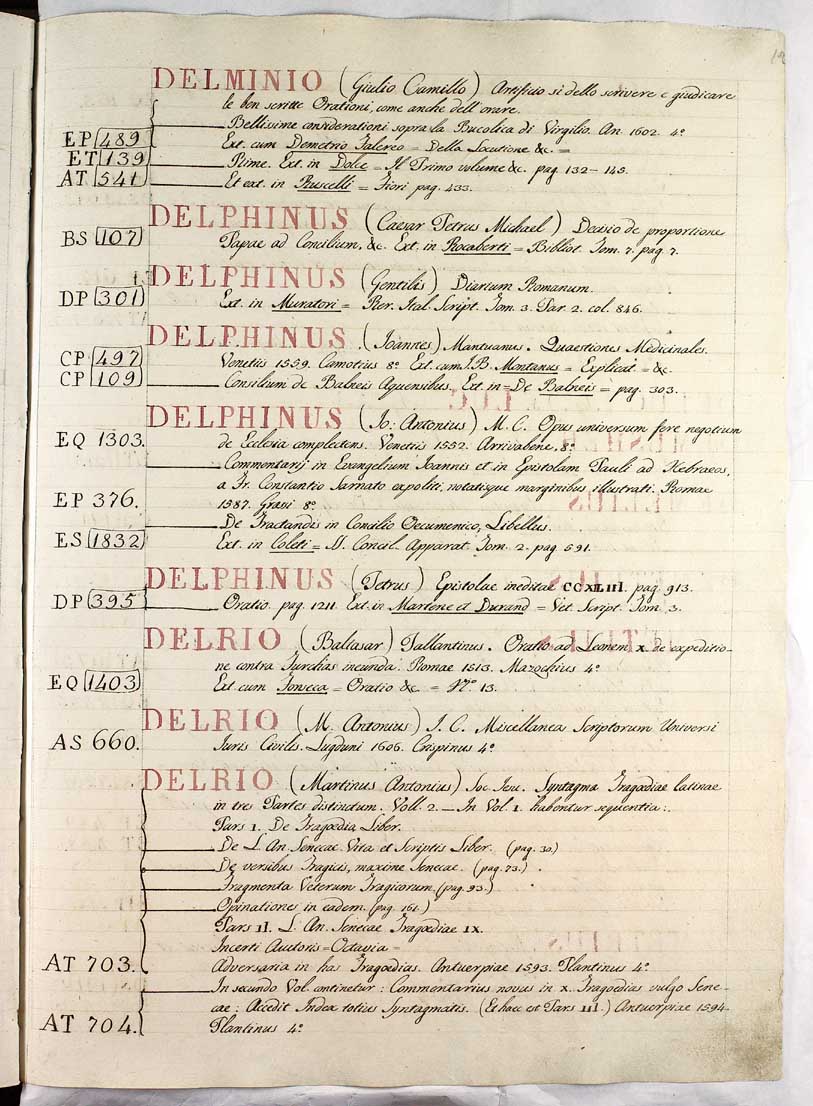 DELMINIO (Giulio Camillo) Artificio si dello scrivere e giudicare
le ben scritte Orationi, come anche dell'orare.
Bellissime considerationi sopra la Bucolica di Virgilio. An. 1602. 4º
EP 489 Ext. cum Demetrio Falereo = Della Locutione &c. =
ET 139 Rime. Ext. in Dolce = Il Primo volume &c. pag. 132 - 145.
AT 541 Et ext. in Ruscelli = Fiori pag. 433.
DELPHINUS (Caesar Petrus Michael) Decisio de proportione
BS 107 Papae ad Concilium, &c. Ext. in Rocaberti = Bibliot. Tom. 7. pag. 7.
DELPHINUS (Gentilis) Diarium Romanum.
DP 301 Ext. in Muratori = Rer. Ital. Script. Tom. 3. Par. 2. col. 846.
DELPHINUS (Ioannes) Mantuanus. Quaestiones Medicinales.
CP 497 Venetiis 1559. Camotius 8º Ext. cum J.B. Montanus = Explicat = &c.
CP 109 Consilium de Balneis Aquensibus. Ext. in = De Balneis = pag. 303.
DELPHINUS (Jo: Antonius) M. C. Opus universum fere negotium
EQ 1303. de Ecclesia complectens. Venetiis 1552. Arrivabene. 8º
Commentarij in Evangelium Ioannis et in Epistolam Pauli ad Hebraeos,
a Fr. Constantio Sarnato expoliti, notatisque marginibus illustrati. Romae
EP 376. 1587. Grasi 8º
De Tractandis in Concilio Oecumenico, Libellus.
ES 1832 Ext. in Coleti = SS. Concil. Apparat. Tom. 2. pag. 591.
DELPHINUS (Petrus) Epistolae ineditae CCXLIII. pag. 913.
DP 395 Oratio. pag. 1211. Ext. in Martene et Durand = Vet. Script. Tom. 3.
DELRIO (Baltasar) Pallantinus. Oratio ad Leonem X. de expeditio-
ne contra Turchas ineunda. Romae 1513. Mazochius 4º
EQ 1403 Ext. cum Fonseca = Oratio &c. = Nº 13.
DELRIO (M. Antonius) J. C. Miscellanea Scriptorum Universi
AS 660. Iuris Civilis. Lugduni 1606. Crispinus 4º
DELRIO (Martinus Antonius) Soc. Iesu. Syntagma Tragoediae latinae
in tres Partes distinctum. Voll. 2. — In Vol. 1. habentur sequentia:.
Pars I. De Tragoedia Liber.
De L. An. Senecae Vita et Scriptis Liber. (pag. 30.)
De versibus Tragicis, maxime Senecae. (pag. 73.)
Fragmenta Veterum Tragicorum. (pag. 93.)
Opinationes in eadem. (pag. 161.)
Pars II. L. An. Senecae Tragoediae IX.
Incerti Auctoris = Octavia =
AT 703. Adversaria in has Tragoedias. Antuerpiae 1593. Plantinus 4º
In secundo Vol. continetur: Commentarius novus in X. Tragoedias vulgo Sene-
cae: Accedit Index totius Syntagmatis. (Et haec est Pars III.) Antuerpiae 1594.
AT 704. Plantinus 4º